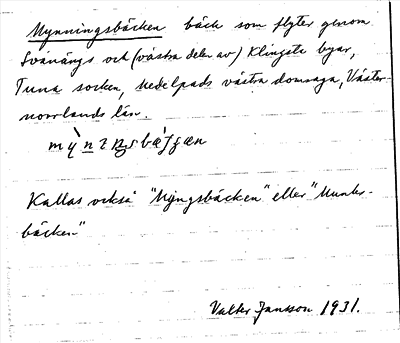 Mynningsbäcken bäck som flyter genom
Svänängs och (västra delen av) Klingsta byar,
Tuna socken, Medelpads västra domsaga, Väster-
norrlands län.
Kallas också "Myngsbäcken" eller "Munks-
bäcken"
Valter Jansson 1931.